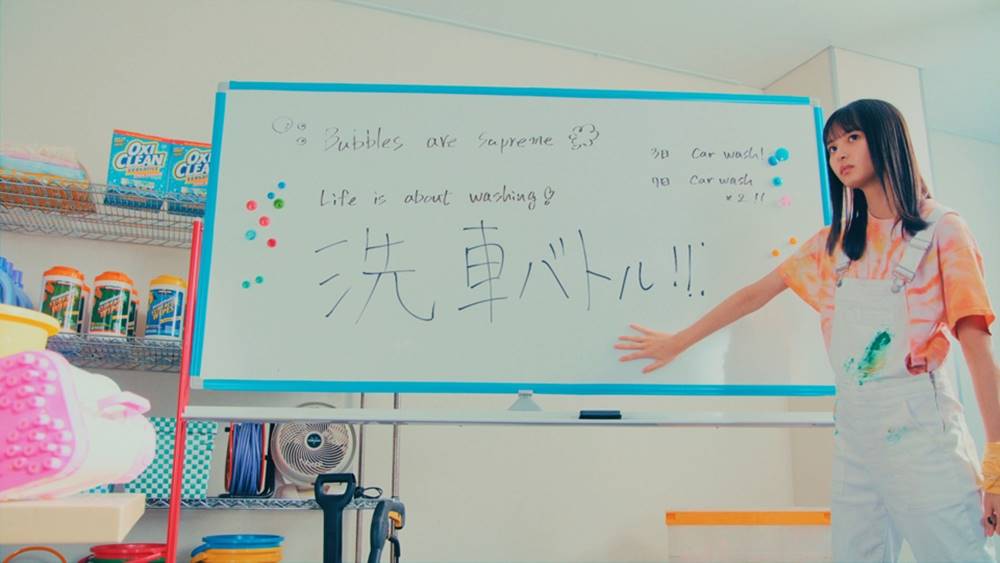 Bubbles are supreme
3日 Car wash!
7日 Car wash
× 2 !!
Life is about washing!
洗車バトル!!
OXI CLEAN
OXI CLEAN
WIPES
WIPES